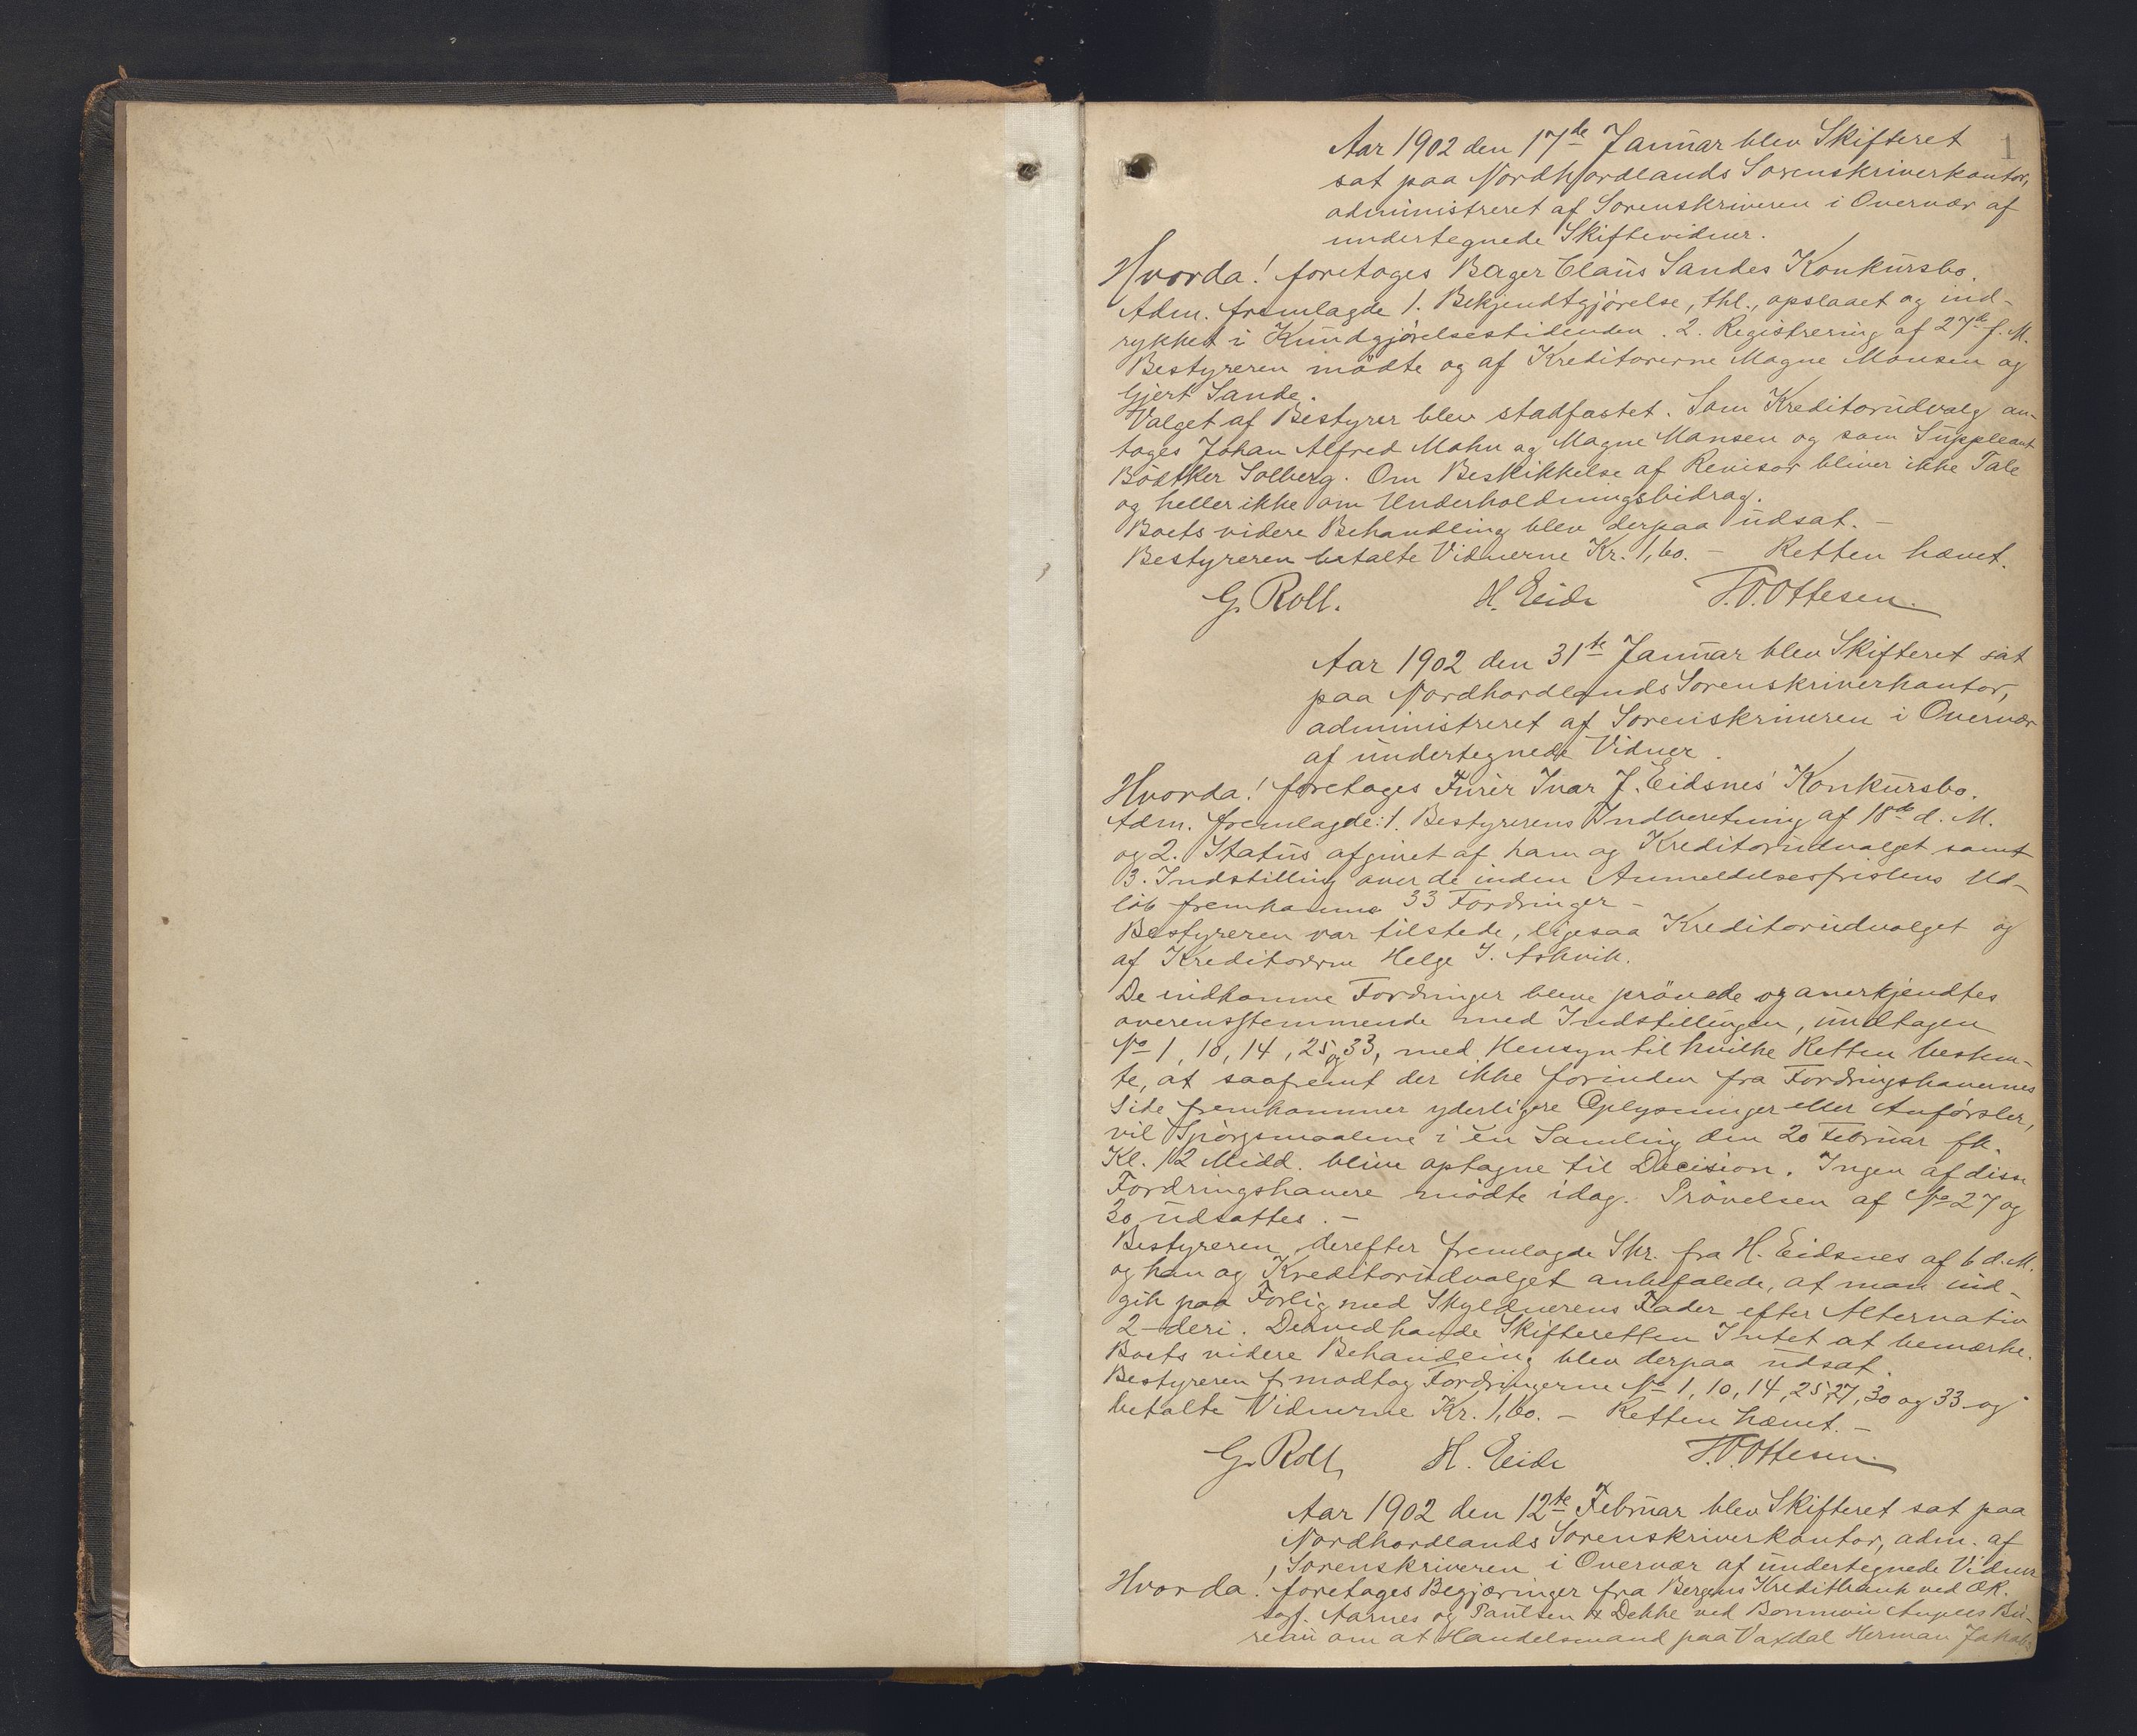 1
Aar 1902 den 17de Januar blev Skifteret
sat paa Nordhordlands Sorenskriverkontor,
administreret af Sorenskriveren i Overvær af
undertegnede Skiftevidner.
Hvorda! foretages Bager Claus Sandes Konkursbo.
Adm. fremlagde 1. Bekjendtgjørelse, thl., opslaaet og ind-
rykket i Kundgjørelsestidenden. 2. Registrering af 27de f. M.
Bestyreren mødte og af Kreditorerne Magne Monsen og
Gjert Sande.
Valget af Bestyrer blev stadfæstet. Som Kreditorudvalg an-
toges Johan Alfred Mohn og Magne Monsen og som Suppleant
Bødtker Solberg. Om Beskikkelse af Revisor bliver ikke Tale
og heller ikke om Underholdningsbidrag.
Boets videre Behandling blev derpaa udsat. –
Bestyreren betalte Vidnerne Kr. 1,60. – Retten hævet.
G. Roll. H. Eide T.O. Ottesen.
Aar 1902 den 31te Januar blev Skifteret sat
paa Nordhordlands Sorenskriverkontor,
administreret af Sorenskriveren i Overvær
af undertegnede Vidner.
Hvorda! foretages Furer Ivar J. Eidsnes' Konkursbo.
Adm. fremlagde: 1. Bestyrerens Indberetning af 18de d. M.
og 2. Status afgivet af ham og Kreditorudvalget samt
3. Indstilling over de inden Anmeldelsesfristens Ud-
løb fremkomne 33 Fordringer –
Bestyreren var tilstede, ligesaa Kreditorudvalget og
af Kreditorerne Helge I. Askvik.
De indkomne Fordringer bleve prøvede og anerkjendtes
overensstemmende med Indstillingen, undtagen
No 1, 10, 14, 25 og 33, med Hensyn til hvilke Retten bestem-
te, at saafremt der ikke forinden fra Fordringshavernes
Side fremkommer yderligere Oplysninger eller Anførsler,
vil Spørgsmaalene i en Samling den 20 Februar fk.
Kl. 12 Midd. blive optagne til Decision. Ingen af disse
Fordringshavere mødte idag. Prøvelsen af No 27 og
30 udsattes. –
Bestyreren derefter fremlagde Skr. fra H. Eidsnes af 6 d. M.
og han og Kreditorudvalget anbefalede, at man ind-
gik paa Forlig med Skyldnerens Fader efter Alternativ
2 deri. Derved havde Skifteretten Intet at bemærke.
Boets videre Behandling blev derpaa udsat.
Bestyreren modtog Fordringerne No 1, 10, 14, 25, 27, 30 og 33 og
betalte Vidnerne Kr. 1,60. – Retten hævet. –
G. Roll, H. Eide T.O. Ottesen.
Aar 1902 den 12te Februar blev Skifteret sat paa
Nordhordlands Sorenskriverkontor, adm. af
Sorenskriveren i Overvær af undertegnede Vidner
Hvorda! foretages Begjæringer fra Bergens Kreditbank ved OR.
sagf. Aarnes og Paulsen & Dekke ved Bonnevie Angells Bu-
reau om at Handelsmand paa Vaxdal Herman